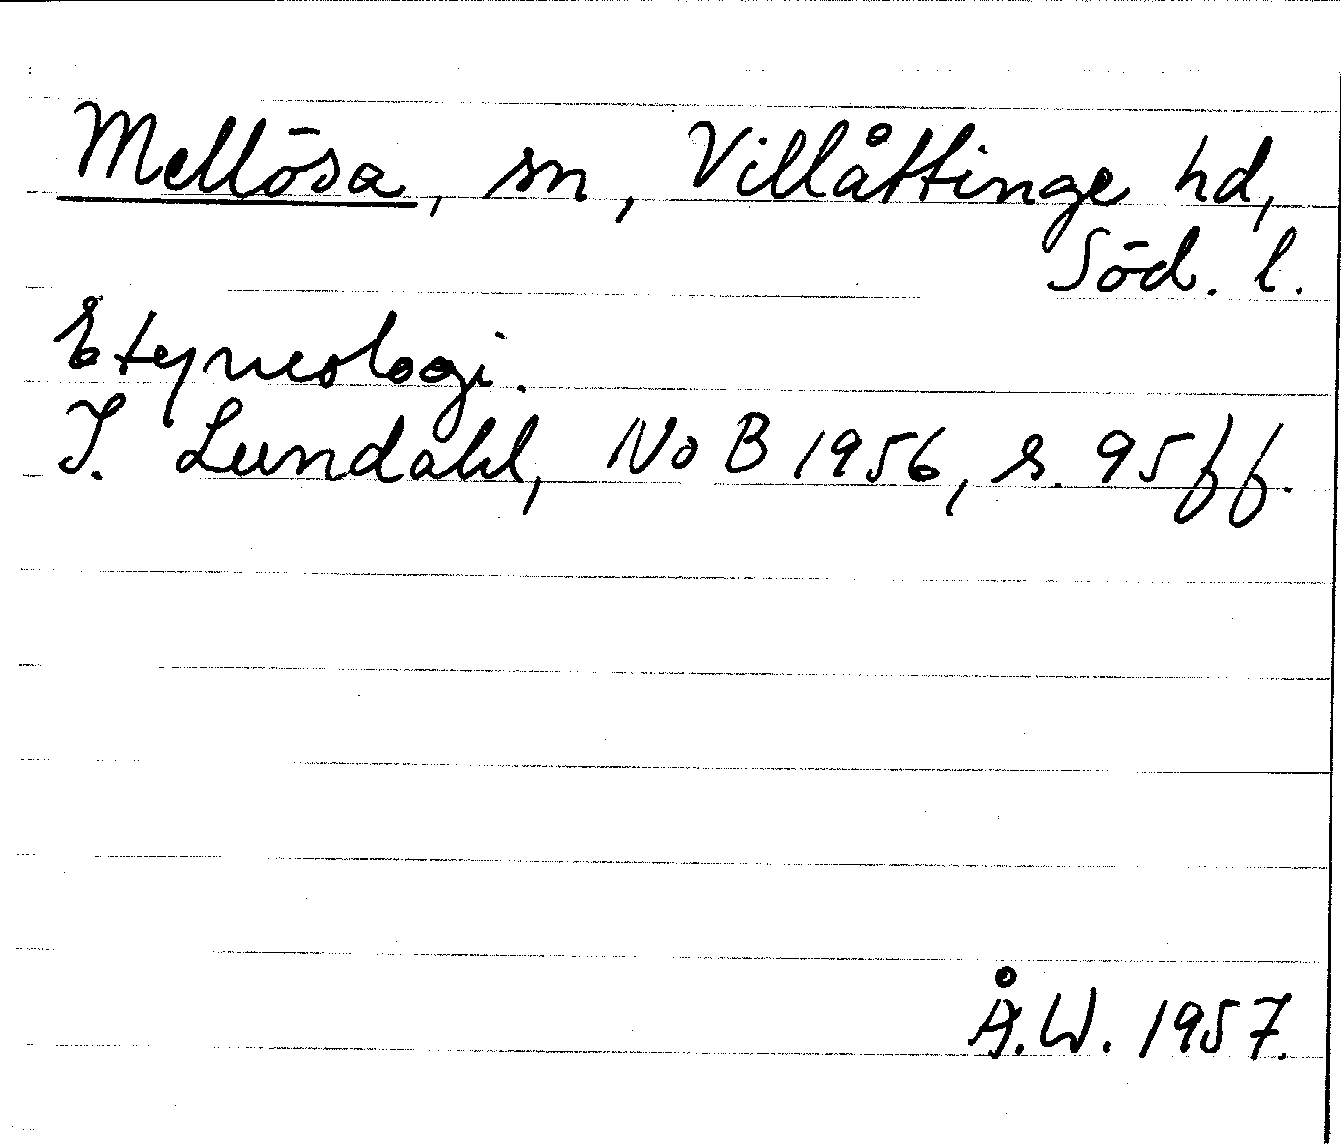 Mellösa, sn, Villåttinge hd,
Söd. l.
Etymologi.
I. Lundahl, NoB 1956, s. 95ff.
Å.W. 1957.